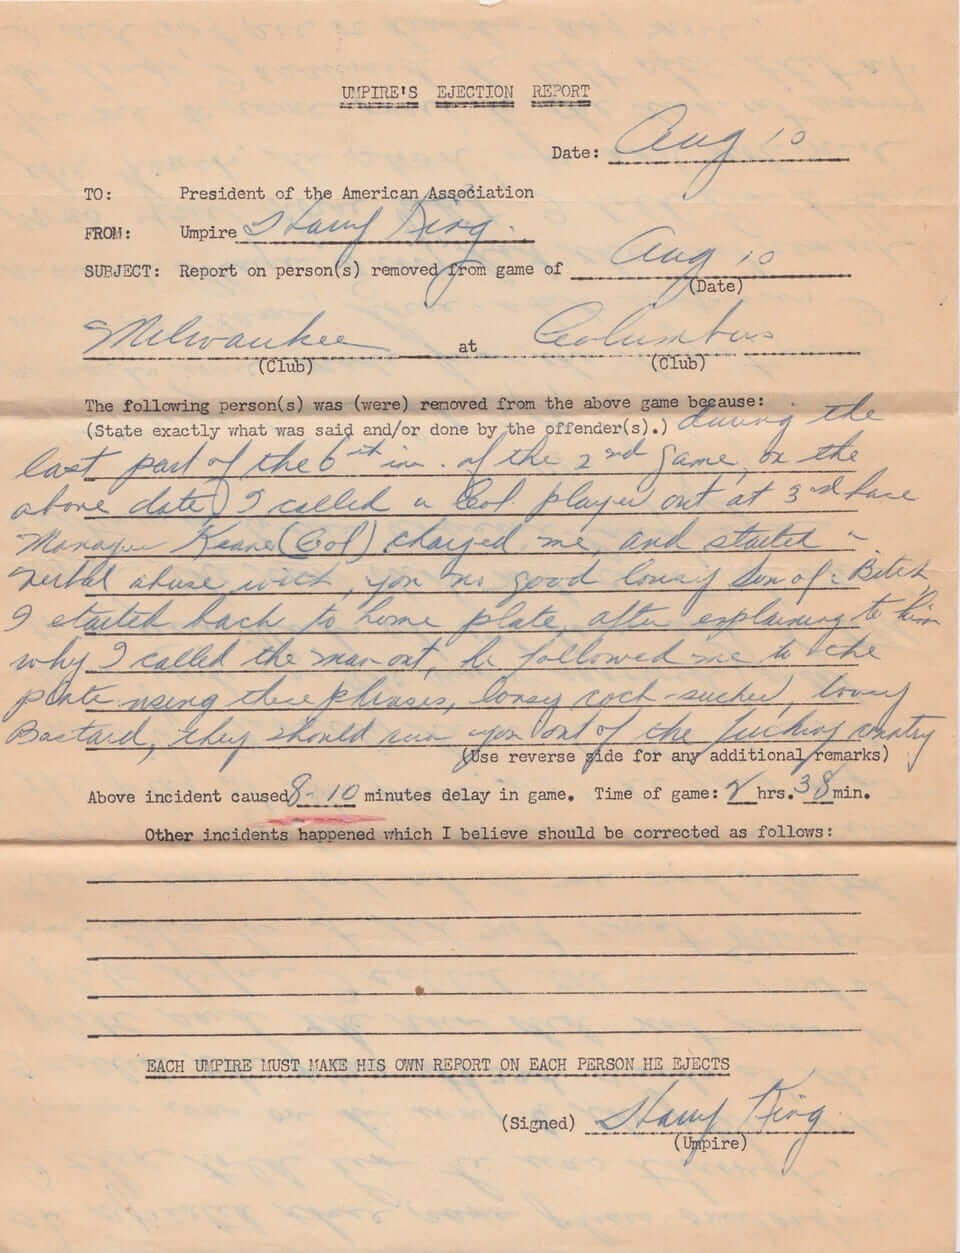 UMPIRE'S EJECTION REPORT
Date: Aug 10
TO: President of the American Association
FROM: Umpire Harry King.
SUBJECT: Report on person(s) removed from game of Aug 10
(Date)
Milwaukee at Columbus
(Club) (Club)
The following person(s) was (were) removed from the above game because:
(State exactly what was said and/or done by the offender(s).) during the
last part of the 6th inn. of the 2nd game, on the
above date, I called a Col player out at 3rd base
Manager Keane (Col) charged me, and started a
verbal abuse with, you no good lousy Son of a Bitch,
I started back to home plate, after explaining to him
why I called the man out, he followed me to the
plate using these phrases, lousy cock-sucker, lousy
Bastard, they should run you out of the fucking country
(Use reverse side for any additional remarks)
Above incident caused 8-10 minutes delay in game. Time of game: 2 hrs. 38 min.
Other incidents happened which I believe should be corrected as follows:
EACH UMPIRE MUST MAKE HIS OWN REPORT ON EACH PERSON HE EJECTS
(Signed) Harry King
(Umpire)